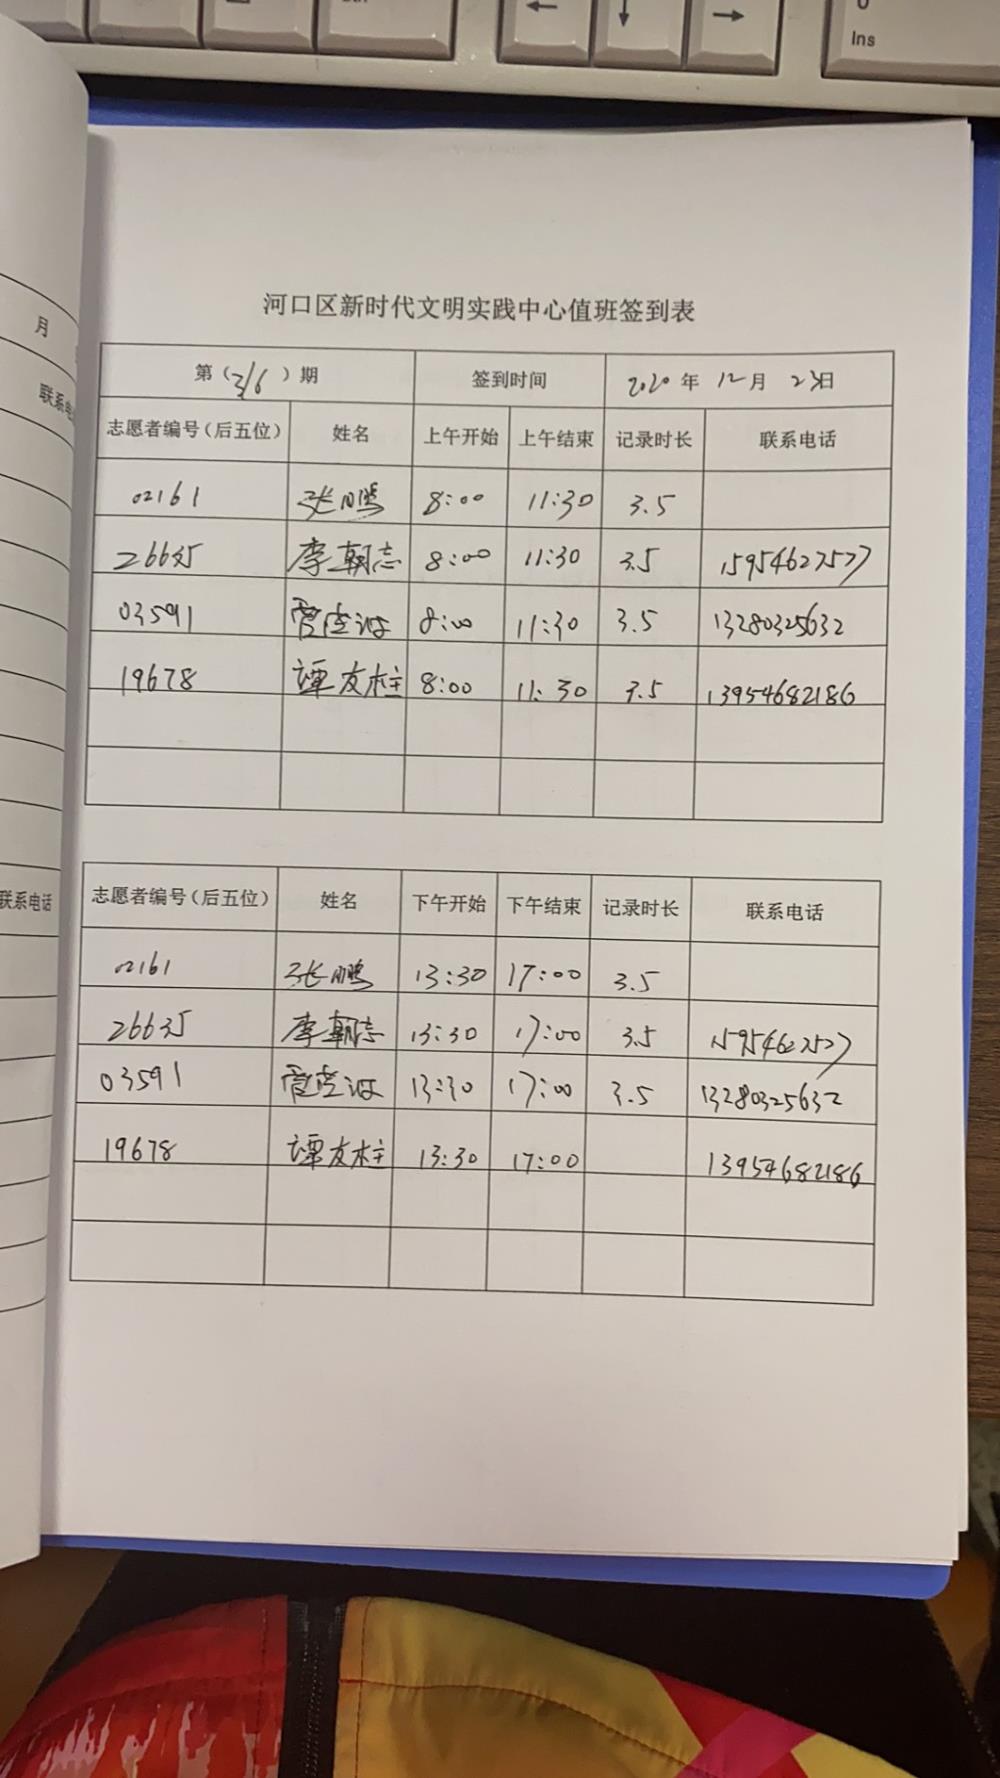 Ins
月
联系电
联系电话
河口区新时代文明实践中心值班签到表
第（316）期 签到时间 2020年 12月 23日
志愿者编号（后五位） 姓名 上午开始 上午结束 记录时长 联系电话
02161 张鹏 8:00 11:30 3.5
26635 李朝志 8:00 11:30 3.5 15954627577
03591 8:00 11:30 3.5 13280325632
19678 谭友柱 8:00 11:30 3.5 13954682186
志愿者编号（后五位） 姓名 下午开始 下午结束 记录时长 联系电话
02161 张鹏 13:30 17:00 3.5
26635 李朝志 13:30 17:00 3.5 15954627577
03591 13:30 17:00 3.5 13280325632
19678 谭友柱 13:30 17:00 13954682186